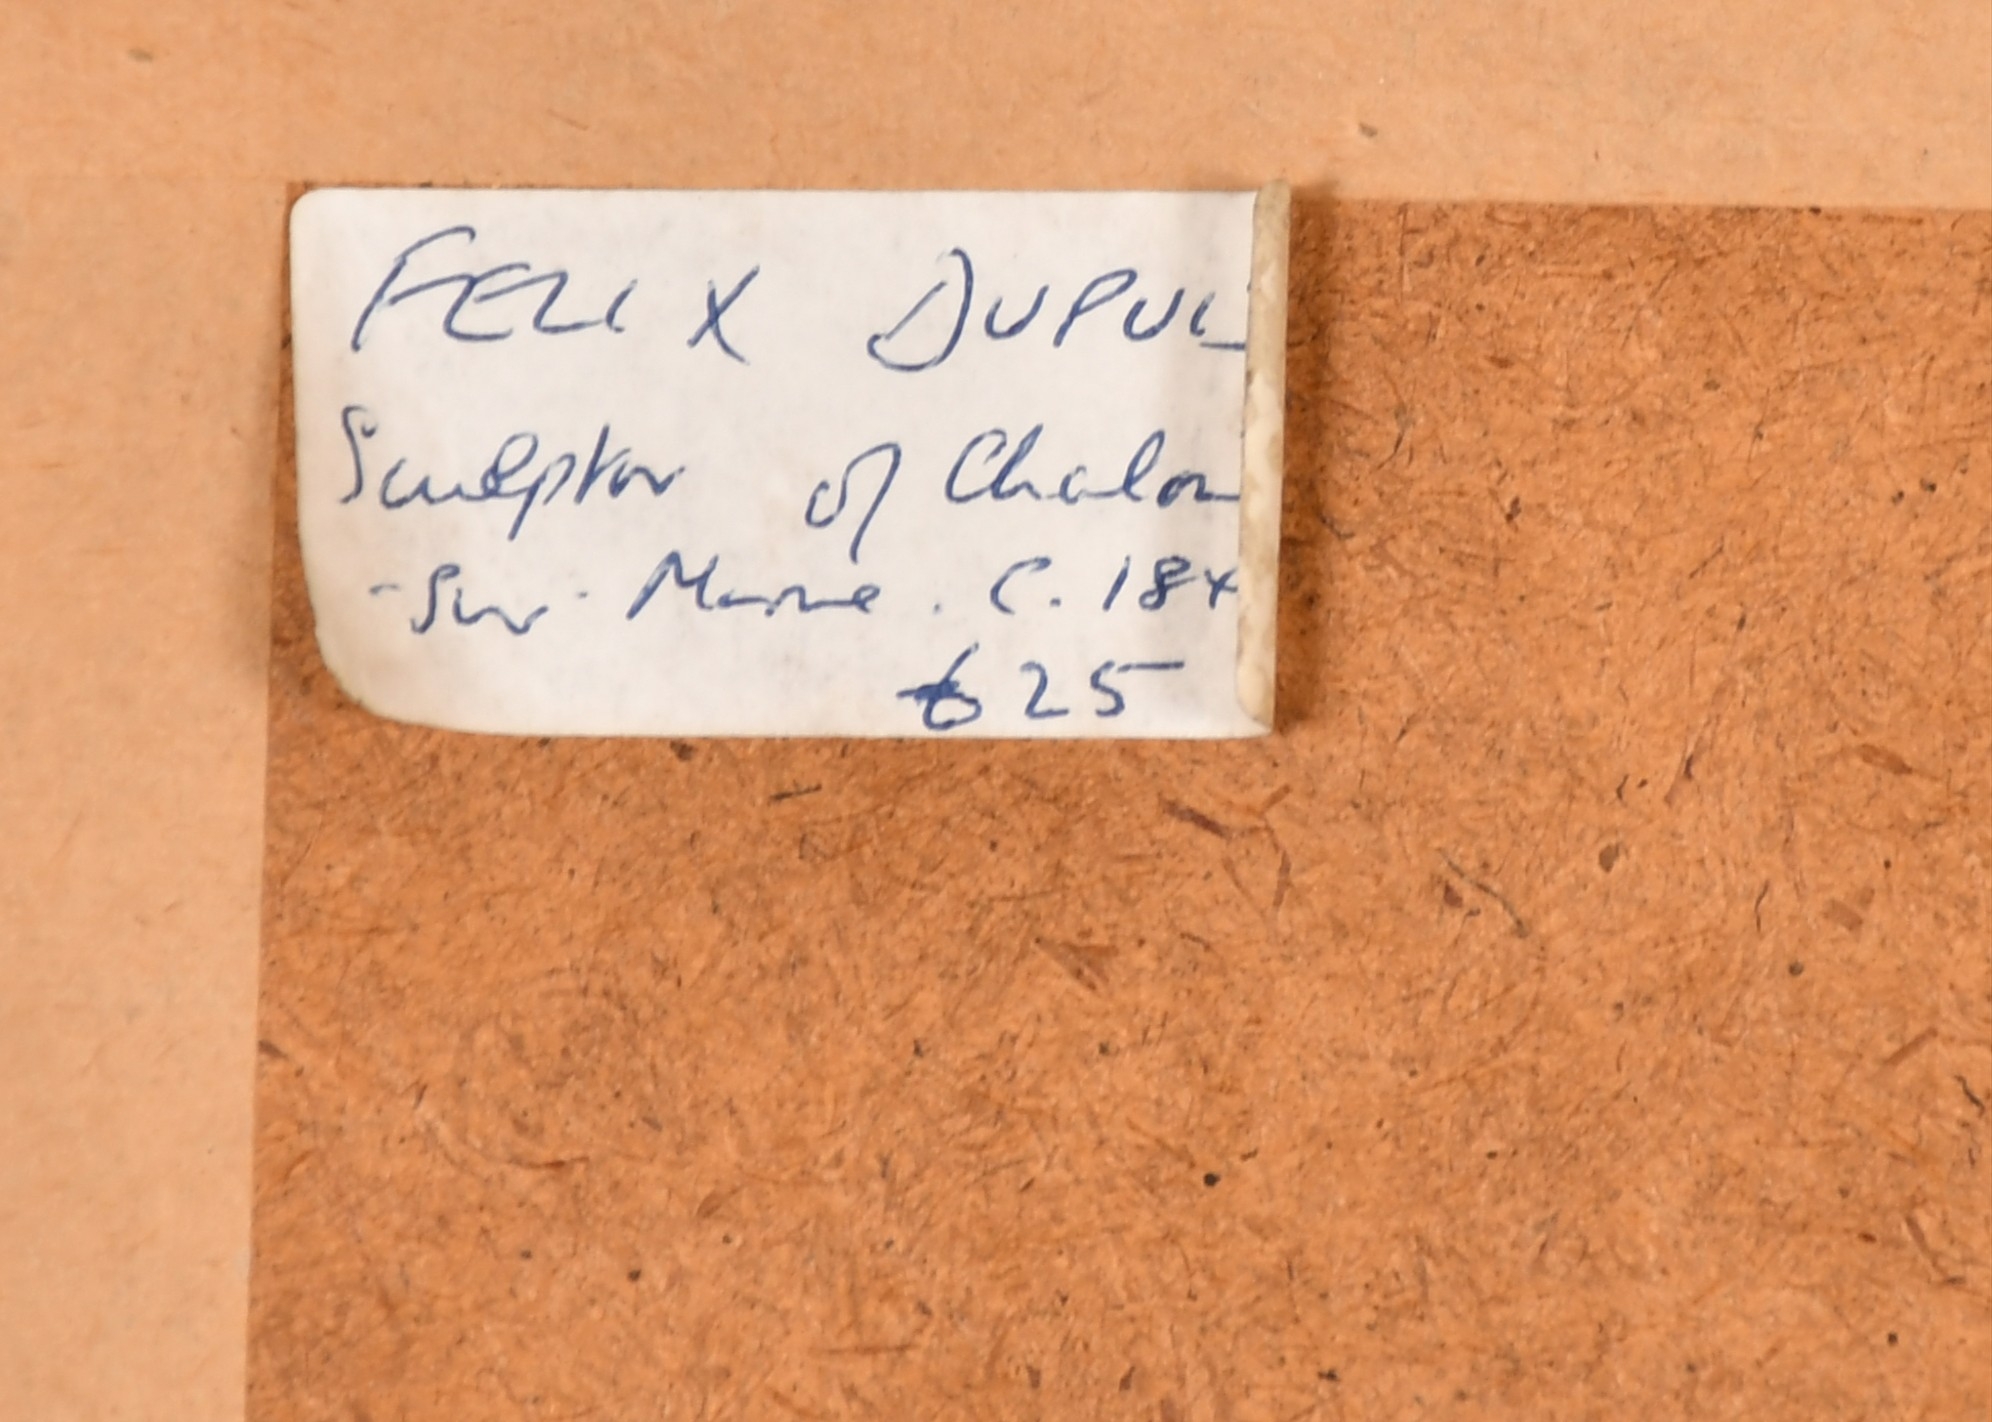 FELIX DUPUI
Sculptor of Chalon
-Sur-Marne. C. 184
£25